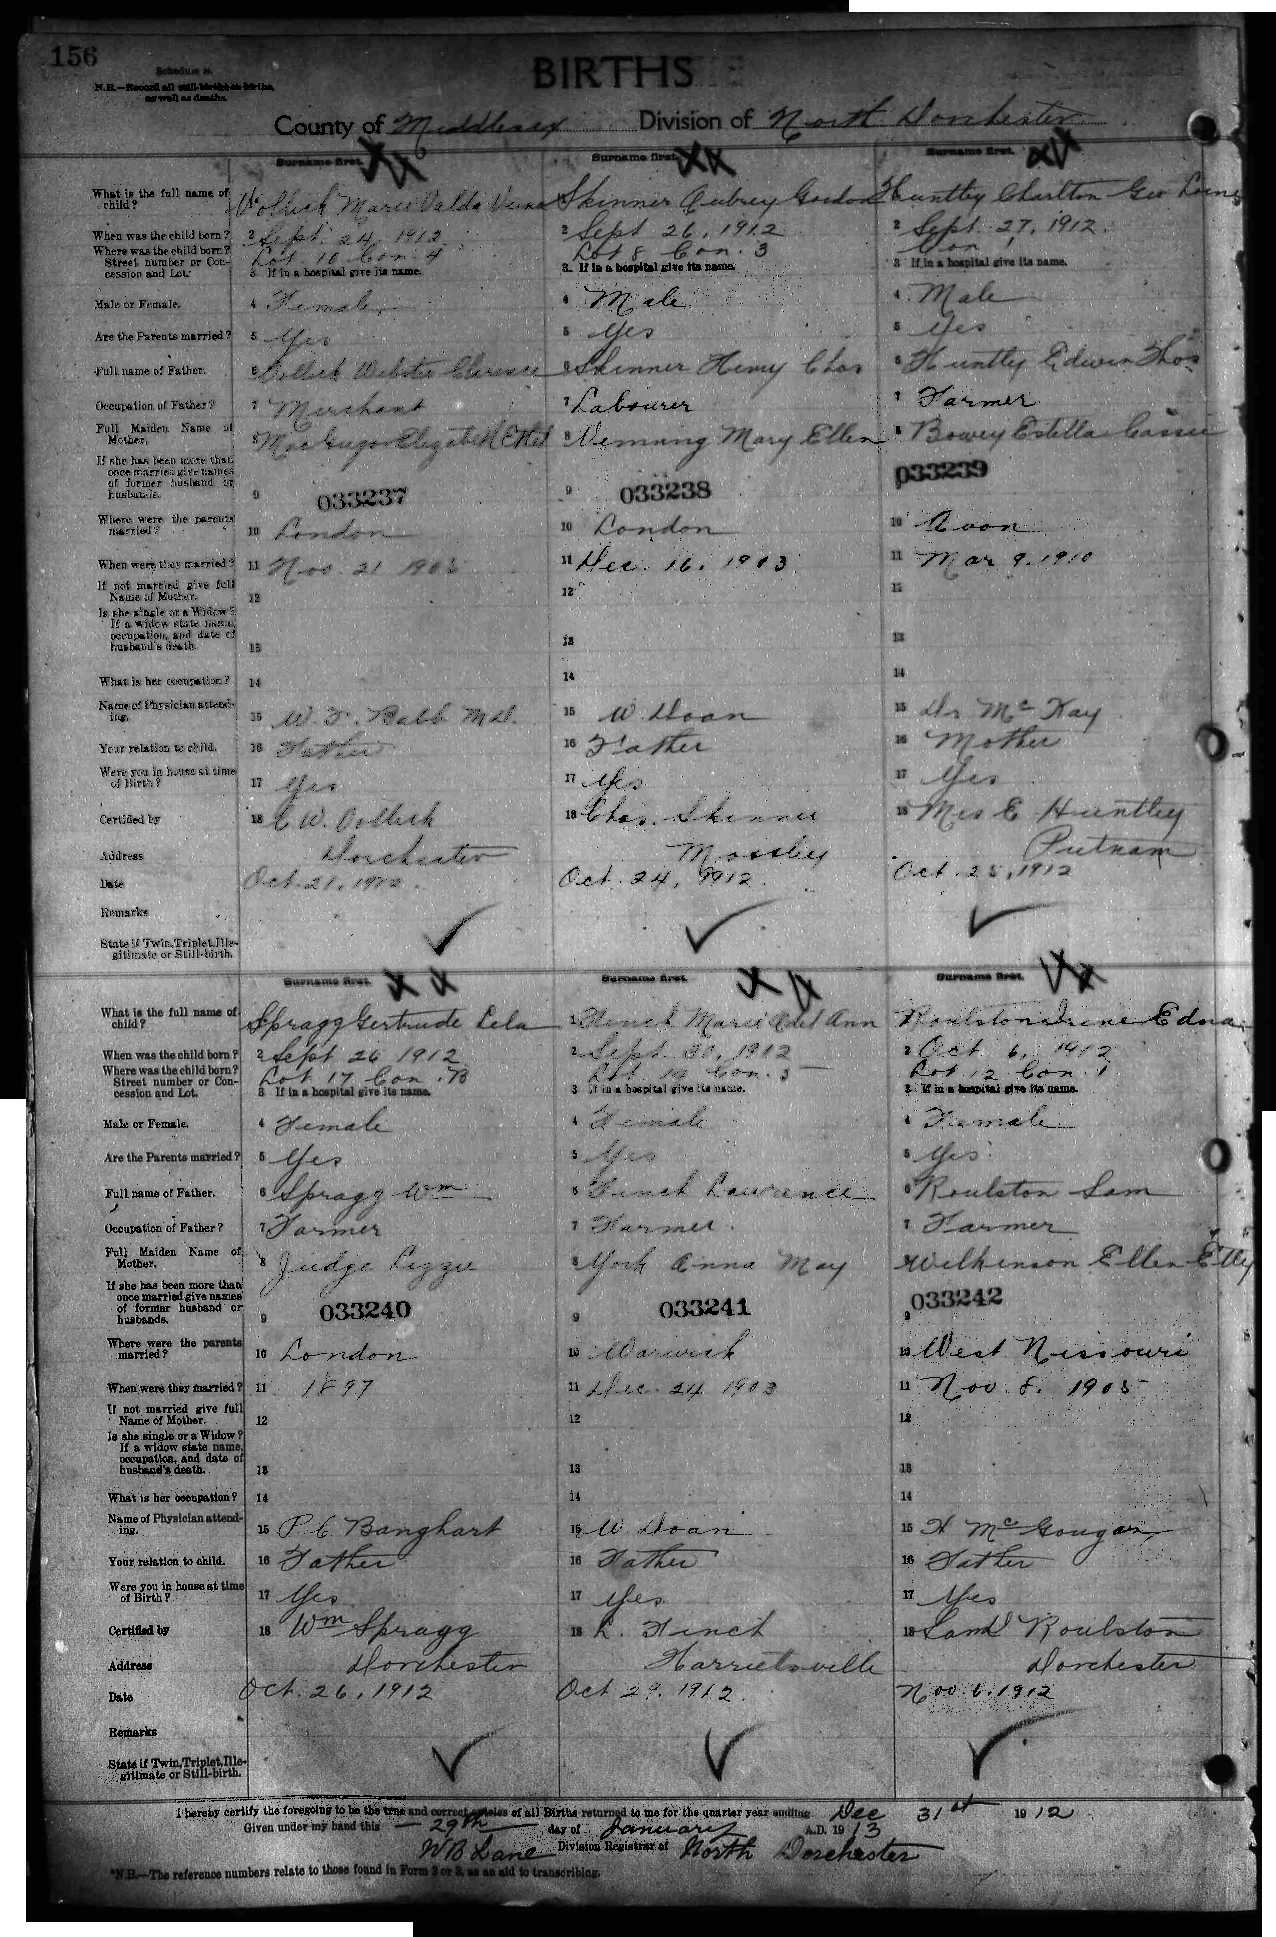 156
Schedule A.
N.B.—Record all still-births as births,
as well as deaths.
BIRTHS
County of Middlesex Division of North Dorchester
Surname first. Surname first. Surname first.
What is the full name of child? Marie Valda Skinner Aubrey Gordon Huntley Charlton Geo
When was the child born? 2 Sept. 24, 1912 2 Sept 26, 1912 2 Sept. 27, 1912.
Where was the child born? Street number or Concession and Lot. Lot 10 Con. 4 Lot 8 Con. 3 Con. 1
3 If in a hospital give its name. 3. If in a hospital give its name. 3 If in a hospital give its name.
Male or Female. 4 Female 4 Male 4 Male
Are the Parents married? 5 Yes 5 Yes 5 Yes
Full name of Father. 6 Webster Clarence 6 Skinner Henry Chas 6 Huntley Edwin Thos
Occupation of Father? 7 Merchant 7 Labourer 7 Farmer
Full Maiden Name of Mother. 8 MacGregor Elizabeth Ethel 8 Mary Ellen 8 Bowey Estella Cassie
If she has been more than once married give names of former husband or husbands. 9 033237 9 033238 033239
Where were the parents married? 10 London 10 London 10 Avon
When were they married? 11 Nov. 21 11 Dec. 16, 1903 11 Mar 9, 1910
If not married give full Name of Mother. 12 12 12
Is she single or a Widow? If a widow state name, occupation, and date of husband's death. 13 13 13
What is her occupation? 14 14 14
Name of Physician attending. 15 W. F. Babb M.D. 15 W Doan 15 Dr McKay
Your relation to child. 16 Father 16 Father 16 Mother
Were you in house at time of Birth? 17 Yes 17 Yes 17 Yes
Certified by 18 C W. Vollick 18 Chas. Skinner 18 Mrs E Huntley
Address Dorchester Mossley Putnam
Date Oct. 21, 1912. Oct. 24, 1912. Oct. 25, 1912
Remarks
State if Twin, Triplet, Illegitimate or Still-birth.
Surname first. Surname first. Surname first.
What is the full name of child? Spragg Gertrude Lela 1 Finch Marie Ann Roulston Irene Edna
When was the child born? 2 Sept 26 1912 2 Sept 30, 1912 2 Oct. 6, 1912
Where was the child born? Street number or Concession and Lot. Lot 17 Con. B Lot 19 Con. 5 Lot 12 Con. 1
3 If in a hospital give its name. 3 If in a hospital give its name. 3 If in a hospital give its name.
Male or Female. 4 Female 4 Female 4 Female
Are the Parents married? 5 Yes 5 Yes 5 Yes
Full name of Father. 6 Spragg Wm 6 Finch Lawrence 6 Roulston Sam
Occupation of Father? 7 Farmer 7 Farmer 7 Farmer
Full Maiden Name of Mother. 8 Judge Lizzie 8 York Anna May 8 Wilkinson Ellen Etty
If she has been more than once married give names of former husband or husbands. 9 033240 9 033241 9 033242
Where were the parents married? 10 London 10 Warwick 10 West Nissouri
When were they married? 11 1897 11 Dec. 24 1903 11 Nov. 8. 1905
If not married give full Name of Mother. 12 12 12
Is she single or a Widow? If a widow state name, occupation, and date of husband's death. 13 13 13
What is her occupation? 14 14 14
Name of Physician attending. 15 P C Banghart 15 W Doan 15 H McGougan
Your relation to child. 16 Father 16 Father 16 Father
Were you in house at time of Birth? 17 Yes 17 Yes 17 Yes
Certified by 18 Wm Spragg 18 L. Finch 18 Saml Roulston
Address Dorchester Harrietsville Dorchester
Date Oct. 26, 1912 Oct 29, 1912. Nov. 6, 1912
Remarks
State if Twin, Triplet, Illegitimate or Still-birth.
I hereby certify the foregoing to be the true and correct copies of all Births returned to me for the quarter year ending Dec 31st 1912
Given under my hand this 29th day of January A.D. 1913
W B Lane Division Registrar of North Dorchester
*N.B.—The reference numbers relate to those found in Form 2 or 3, as an aid to transcribing.